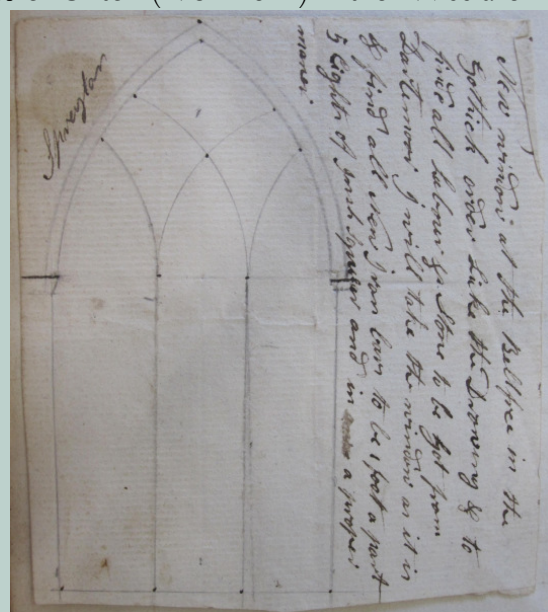 New window at the Bellfree in the
Gothick order Like the Drowing & to
find all Labour & Stone to be Got from
Dartemoor I will take the window as it is
& find all iren Iron bars to be 1 foot a part
5 Lights of and in a proper
maner